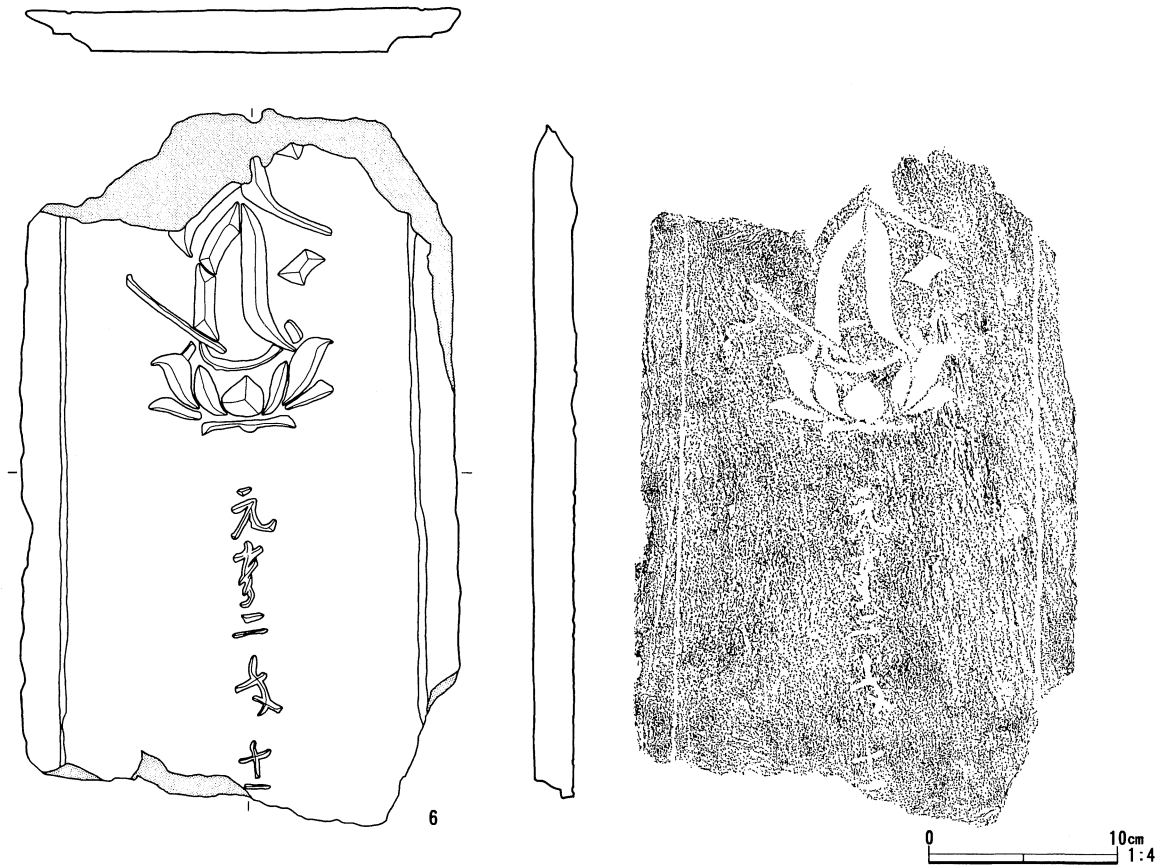 元亨二年十一
6
0 10cm
1:4